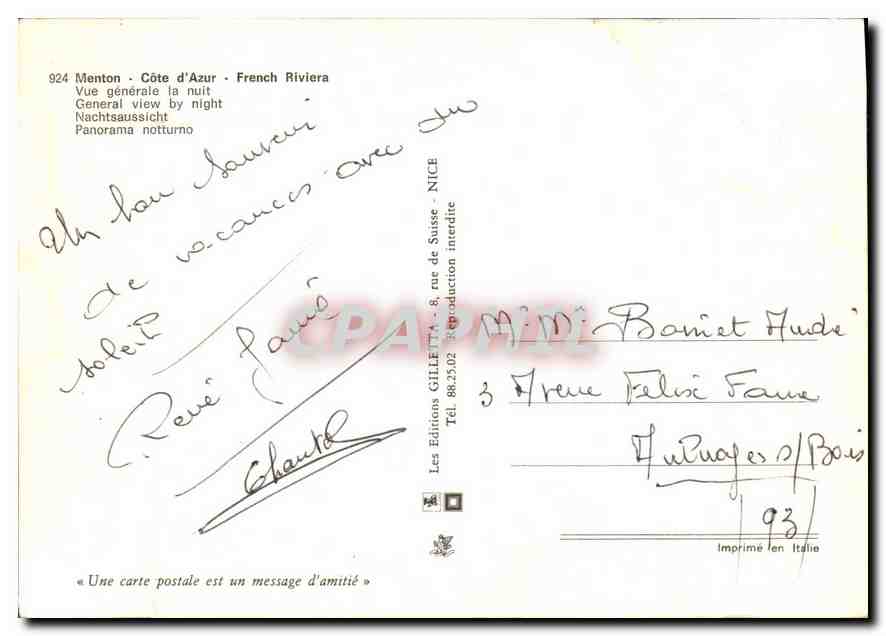 924 Menton - Côte d'Azur - French Riviera
Vue générale la nuit
General view by night
Nachtsaussicht
Panorama notturno
Un bon souvenir
de vacances avec du
soleil
René
Chantal
Les Editions GILLETTA - 8, rue de Suisse - NICE
Tél. 88.25.02 Reproduction interdite
CPAPHIL
Mr. Me André
3 Avenue Felix Faure
Aulnay s/Bois
93
Imprimé en Italie
« Une carte postale est un message d'amitié »